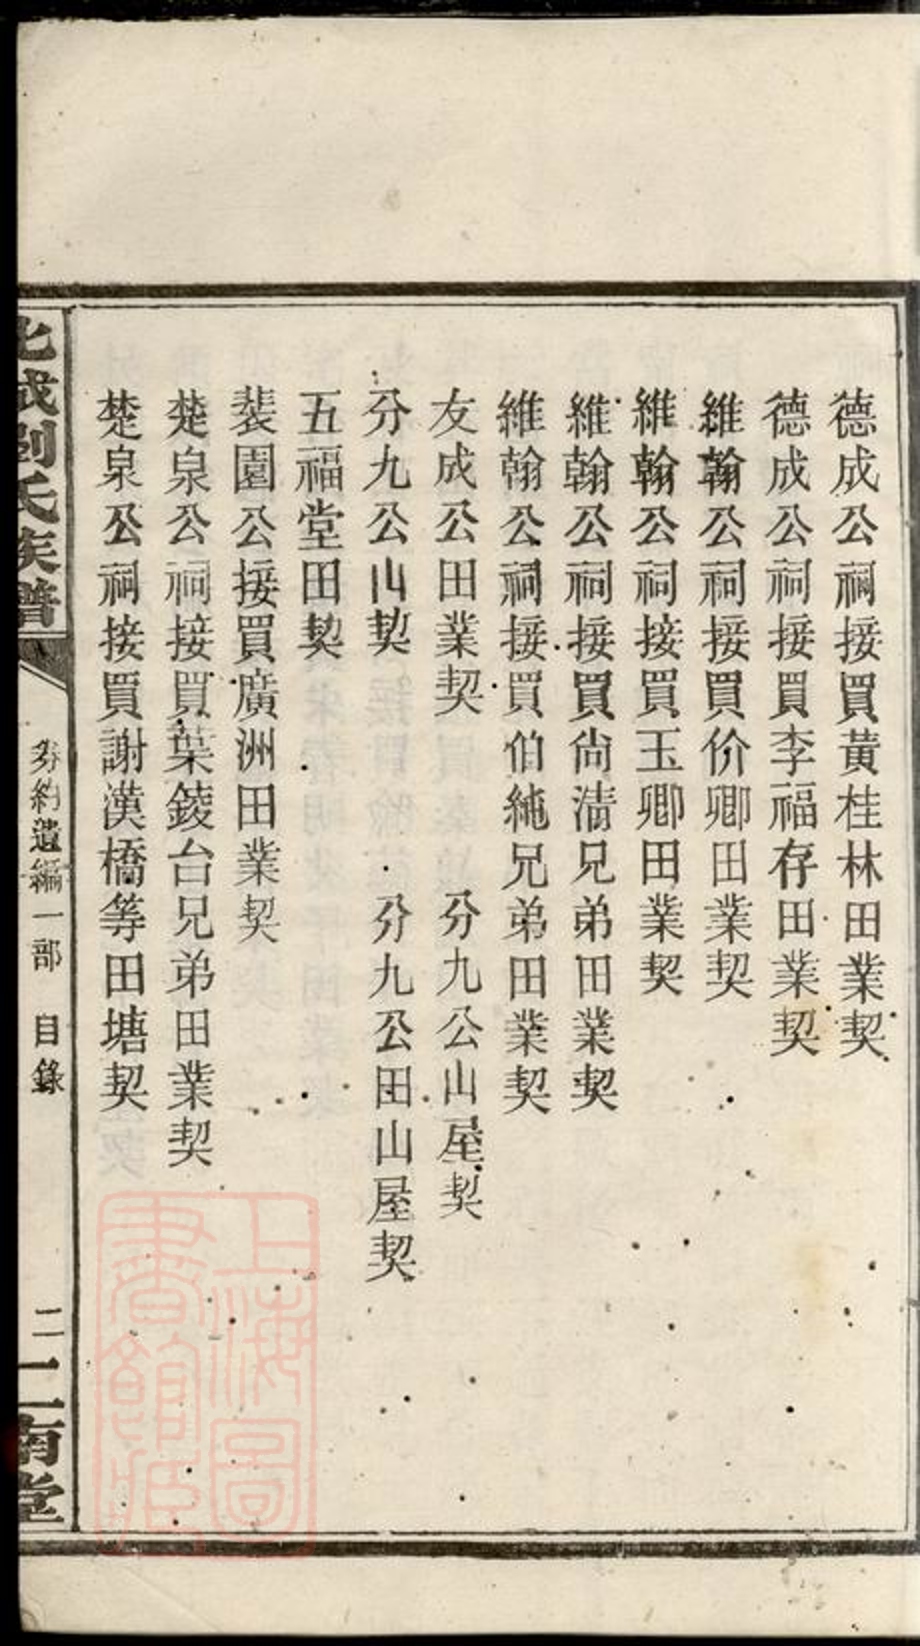 德成公祠接買黃桂林田業契
德成公祠接買李福存田業契
維翰公祠接買价卿田業契
維翰公祠接買玉卿田業契
維翰公祠接買尙淸兄弟田業契
維翰公祠接買伯純兄弟田業契
友成公田業契　分九公山屋契
分九公山契　分九公田山屋契
五福堂田契
裴園公接買廣洲田業契
楚泉公祠接買葉錂台兄弟田業契
楚泉公祠接買謝漢橋等田塘契
北城劉氏族譜
契約遺編一部　目錄
二
二南堂
上海圖
書館藏